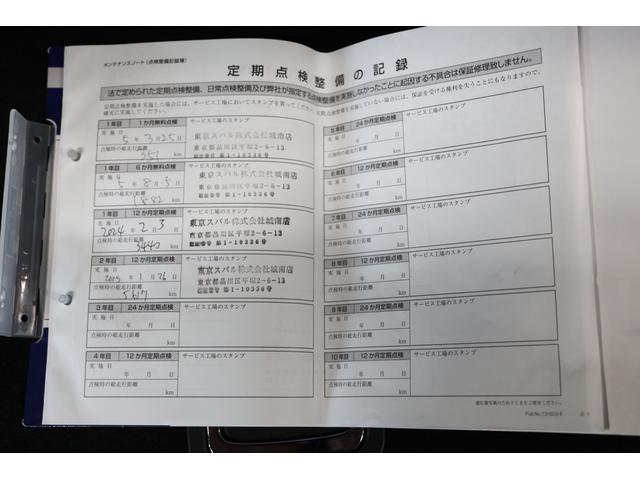 メンテナンスノート (点検整備記録簿)
定期点検整備の記録
法で定められた定期点検整備、日常点検整備及び弊社が指定する点検整備を実施しなかったことに起因する不具合は保証修理致しません。
定期点検整備を実施した場合には、サービス工場においてスタンプを貰ってください。定期点検整備を実施していない場合には、保証を受ける権利を失うことにもなりますので、
確実に実施してください。
1年目 1か月無料点検 サービス工場のスタンプ
実施日
5年3月25日
点検時の総走行距離
351 km
東京スバル株式会社城南店
東京都品川区平塚2-6-13
認証番号 第1-10336号
1年目 6か月無料点検 サービス工場のスタンプ
実施日
5年8月5日
点検時の総走行距離
1882 km
東京スバル株式会社城南店
東京都品川区平塚2-6-13
認証番号 第1-10336号
1年目 12か月定期点検 サービス工場のスタンプ
実施日
2024年2月3日
点検時の総走行距離
3440 km
東京スバル株式会社城南店
東京都品川区平塚2-6-13
認証番号 第1-10336号
2年目 12か月定期点検 サービス工場のスタンプ
実施日
2025年1月26日
点検時の総走行距離
km
東京スバル株式会社城南店
東京都品川区平塚2-6-13
認証番号 第1-10336号
3年目 24か月定期点検 サービス工場のスタンプ
実施日
年 月 日
点検時の総走行距離
km
4年目 12か月定期点検 サービス工場のスタンプ
実施日
年 月 日
点検時の総走行距離
km
5年目 24か月定期点検 サービス工場のスタンプ
実施日
年 月 日
点検時の総走行距離
km
6年目 12か月定期点検 サービス工場のスタンプ
実施日
年 月 日
点検時の総走行距離
km
7年目 24か月定期点検 サービス工場のスタンプ
実施日
年 月 日
点検時の総走行距離
km
8年目 12か月定期点検 サービス工場のスタンプ
実施日
年 月 日
点検時の総走行距離
km
9年目 24か月定期点検 サービス工場のスタンプ
実施日
年 月 日
点検時の総走行距離
km
10年目 12か月定期点検 サービス工場のスタンプ
実施日
年 月 日
点検時の総走行距離
km